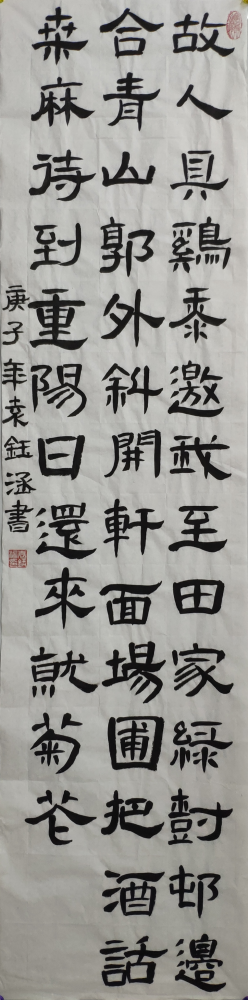 故人具鷄黍邀我至田家綠樹邨邊
合青山郭外斜開軒面場圃把酒話
桒麻待到重陽日還來就菊花
庚子年袁鈺涵書